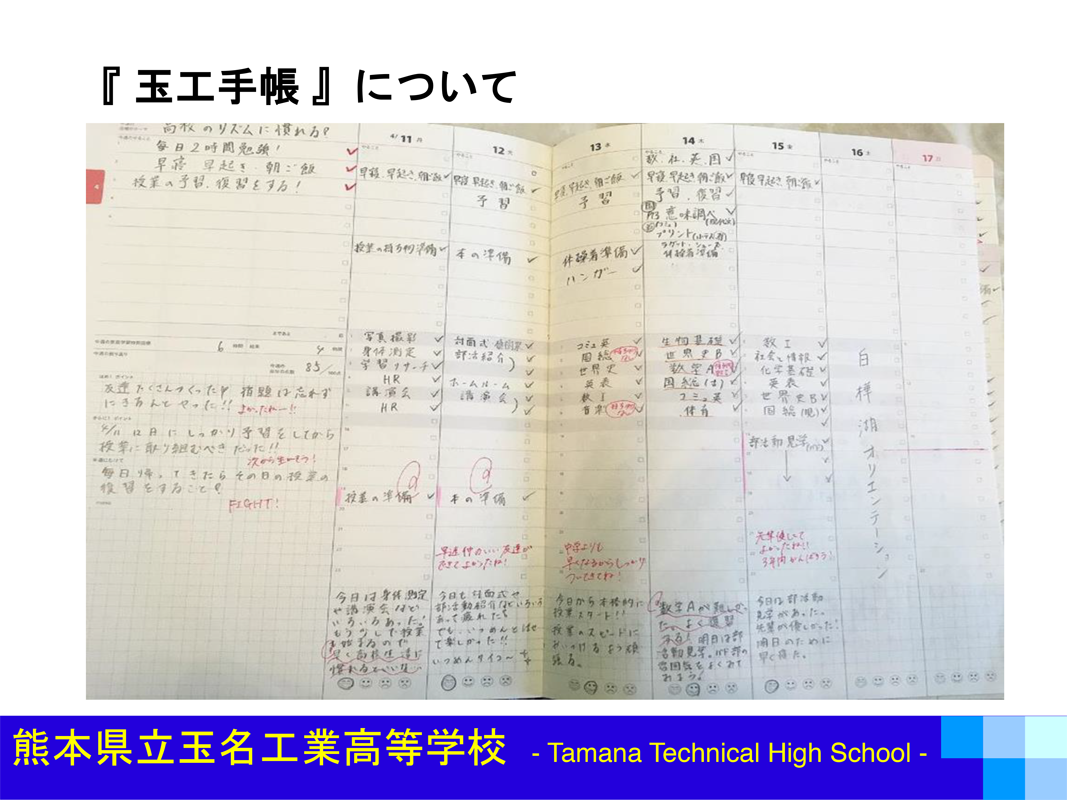 『 玉工手帳 』について
高校のリズムに慣れる!
毎日2時間勉強!
早寝 早起き 朝ご飯
授業の予習、復習をする!
4
6 時間 4 時間
85
友達たくさんつくった! 宿題は忘れず
にきちんとやった!! よかったねー!!
4/11 12日にしっかり予習をしてから
授業に取り組むべきだった!!
次から生かそう!
毎日帰ってきたらその日の授業の
復習をすること!
FIGHT!
4/11 月
早寝、早起き、朝ご飯
授業の持ち物準備
写真撮影
身体測定
学習リサーチ
HR
講演会
HR
授業の準備
今日は身体測定
や講演会など
いろいろあった!
もう少しで授業
も始まるので
早く高校生活に
慣れるといいな
12 火
早寝、早起き、朝ご飯
予習
本の準備
対面式
部活紹介
ホームルーム
講演会
本の準備
早速仲のいい友達が
できてよかったね!
今日も対面式や
部活動紹介などいろいろ
あって疲れたち
楽しかった!!
13 水
早寝、早起き、朝ご飯
予習
体操着準備
ハンガー
コミュ英
国総
世界史
英表
数I
音楽
中学よりも
早くなるからしっかり
ついてきてね!
今日から本格的に
授業スタート!!
授業のスピードに
おいつけるよう頑
張る。
14 木
数、社、英、国
早寝、早起き、朝ご飯
予習、復習
意味調べ
プリント
体操着準備
生物基礎
世界史B
数学A
国総(は)
コミュ英
体育
数学Aが難しかっ
た。よく復習
する! 明日は部
活動見学。
15 金
早寝 早起き 朝ご飯
数I
社会と情報
化学基礎
英表
世界史B
国総(現)
部活動見学
先輩優しくて
よかったね!!
3年間がんばろう!
今日は部活動
見学があった。
先輩が優しかった!
明日のために
早く寝た。
16 土
白樺湖オリエンテーション
17 日
熊本県立玉名工業高等学校 - Tamana Technical High School -